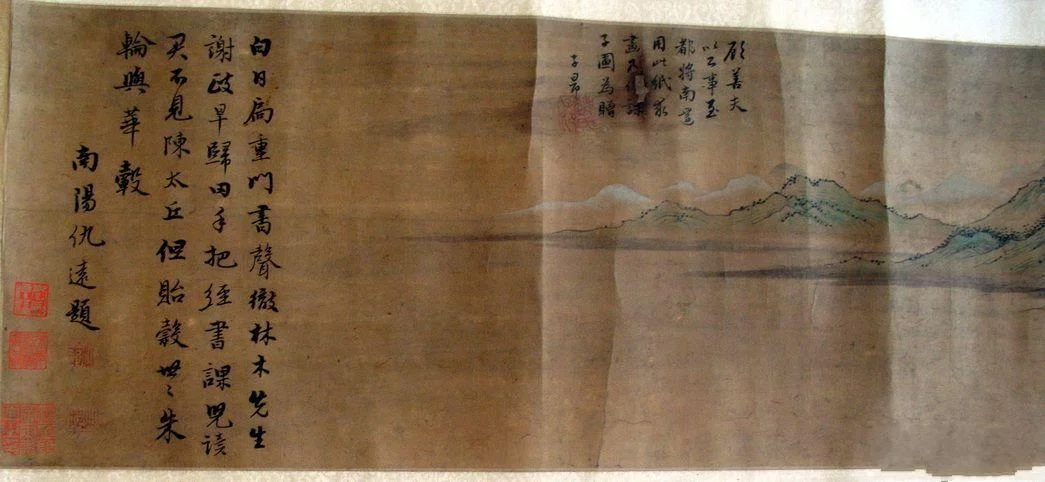 顧善夫
以公事至
都將南還
用此紙求
畫課
子圖為贈
子昂
白日扃重門書聲徹林木先生
謝政早歸田手把經書課兒讀
君不見陳太丘但貽穀世〻朱
輪與華轂
南陽仇遠題